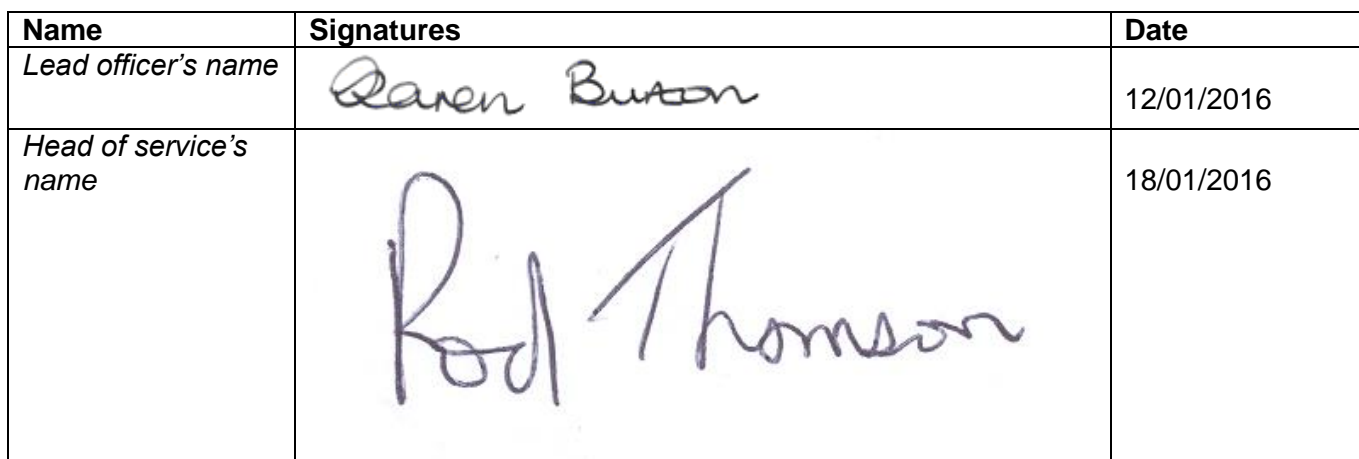 Name Signatures Date
Lead officer's name Karen Burton 12/01/2016
Head of service's
name Rod Thomson 18/01/2016